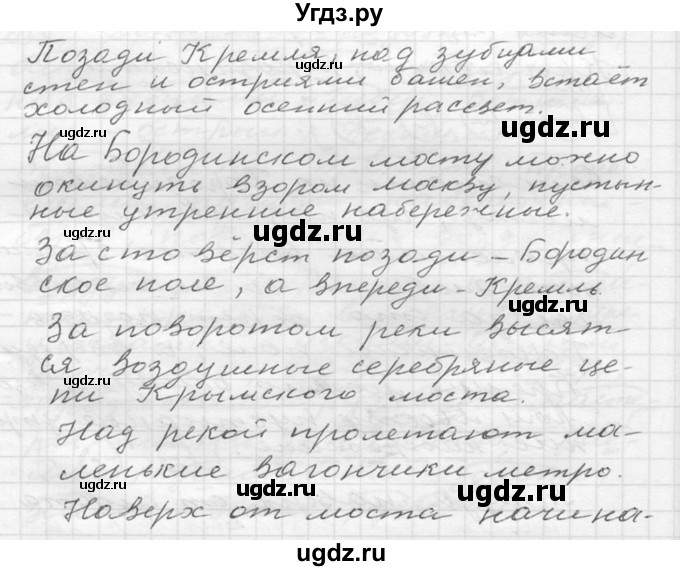 Угдз.ру
Позади Кремля, над зубцами
стен и остриями башен, встаёт
холодный осенний рассвет.
ugdz.ru
ugdz.ru
На Бородинском мосту можно
окинуть взором Москву, пустын-
ные утренние набережные.
ugdz.ru
ugdz.ru
За сто вёрст позади - Бородин
ское поле, а впереди - Кремль.
ugdz.ru
ugdz.ru
За поворотом реки высят-
ся воздушные серебряные це-
пи Крымского моста.
ugdz.ru
ugdz.ru
Над рекой пролетают ма-
ленькие вагончики метро.
ugdz.ru
ugdz.ru
ugdz.ru
Наверх от моста начина-
ugdz.ru
ugdz.ru